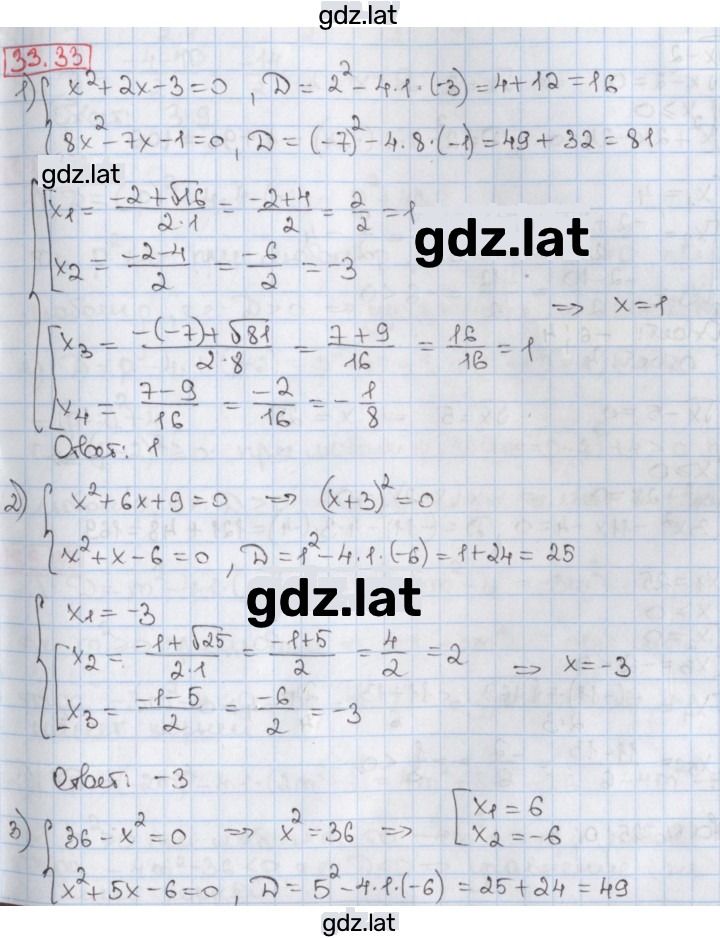 gdz.lat
33.33
1) { x² + 2x - 3 = 0 , D = 2² - 4·1·(-3) = 4 + 12 = 16
8x² - 7x - 1 = 0 , D = (-7)² - 4·8·(-1) = 49 + 32 = 81
gdz.lat
x1 = (-2 + √16)/(2·1) = (-2+4)/2 = 2/2 = 1
gdz.lat
x2 = (-2-4)/2 = -6/2 = -3
=> x = 1
x3 = (-(-7) + √81)/(2·8) = (7+9)/16 = 16/16 = 1
x4 = (7-9)/16 = -2/16 = -1/8
Ответ: 1
2) { x² + 6x + 9 = 0 => (x+3)² = 0
x² + x - 6 = 0 , D = 1² - 4·1·(-6) = 1 + 24 = 25
gdz.lat
x1 = -3
x2 = (-1 + √25)/(2·1) = (-1+5)/2 = 4/2 = 2
=> x = -3
x3 = (-1-5)/2 = -6/2 = -3
Ответ: -3
3) { 36 - x² = 0 => x² = 36 => [ x1 = 6
x2 = -6
x² + 5x - 6 = 0 , D = 5² - 4·1·(-6) = 25 + 24 = 49
gdz.lat